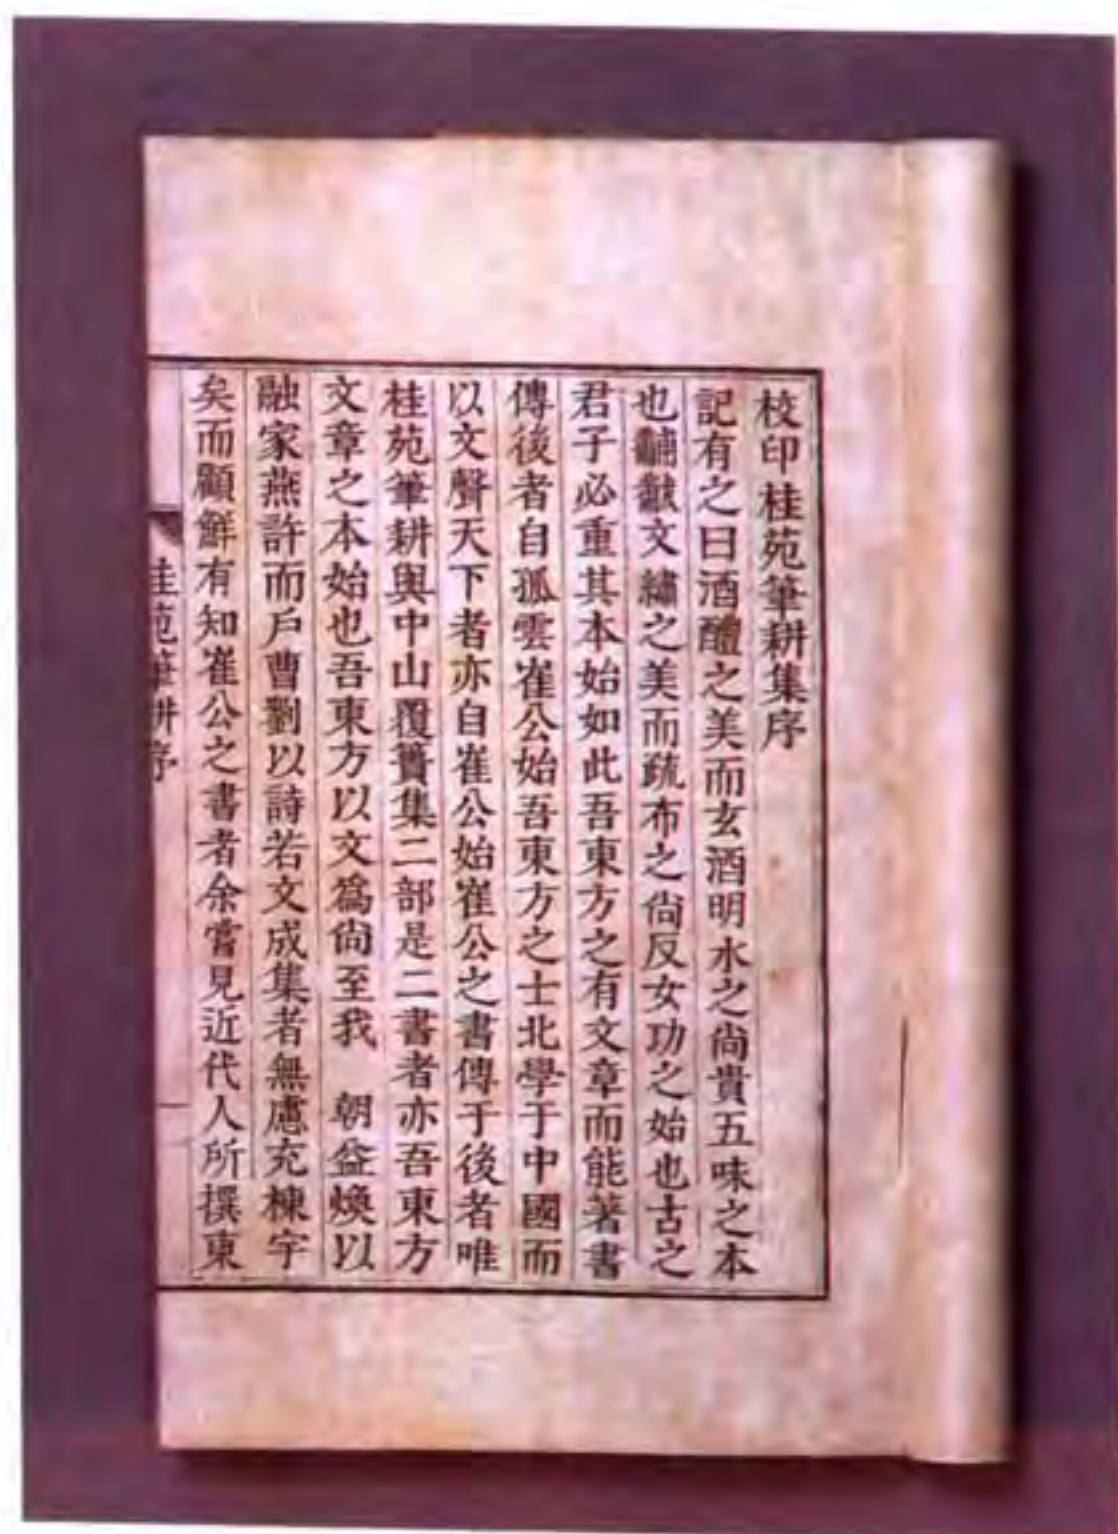 校印桂苑筆耕集序
記有之曰酒醴之美而玄酒明水之尙貴五味之本
也黼黻文繡之美而疏布之尙反女功之始也古之
君子必重其本始如此吾東方之有文章而能著書
傳後者自孤雲崔公始吾東方之士北學于中國而
以文聲天下者亦自崔公始崔公之書傳于後者唯
桂苑筆耕與中山覆簣集二部是二書者亦吾東方
文章之本始也吾東方以文爲尙至我 朝益煥以
融家燕許而戶曹劉以詩若文成集者無慮充棟宇
矣而顧鮮有知崔公之書者余嘗見近代人所撰東
桂苑筆耕序